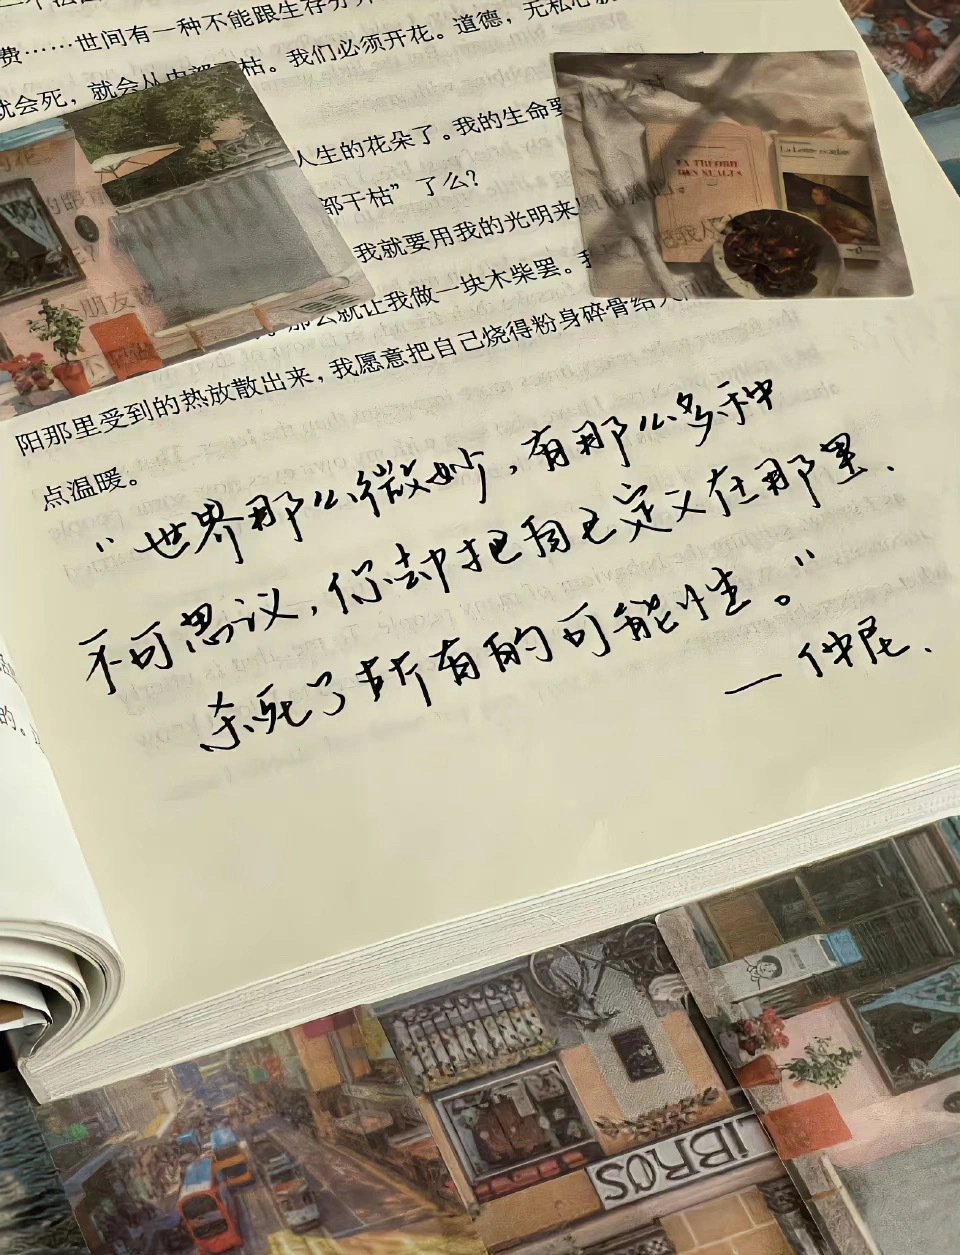 费……世间有一种不能跟生存分
就会死，就会从内部干枯。我们必须开花。道德，无私心就
人生的花朵了。我的生命要
部干枯”了么？
我就要用我的光明来
那么就让我做一块木柴罢。
阳那里受到的热放散出来，我愿意把自己烧得粉身碎骨给人间
点温暖。
“世界那么微妙，有那么多种
不可思议，你却把自己定义在那里.
杀死了所有的可能性。”
—仲尼.
LA THÉORIE
DES NUAGES
La Femme écarlate
LiBROS